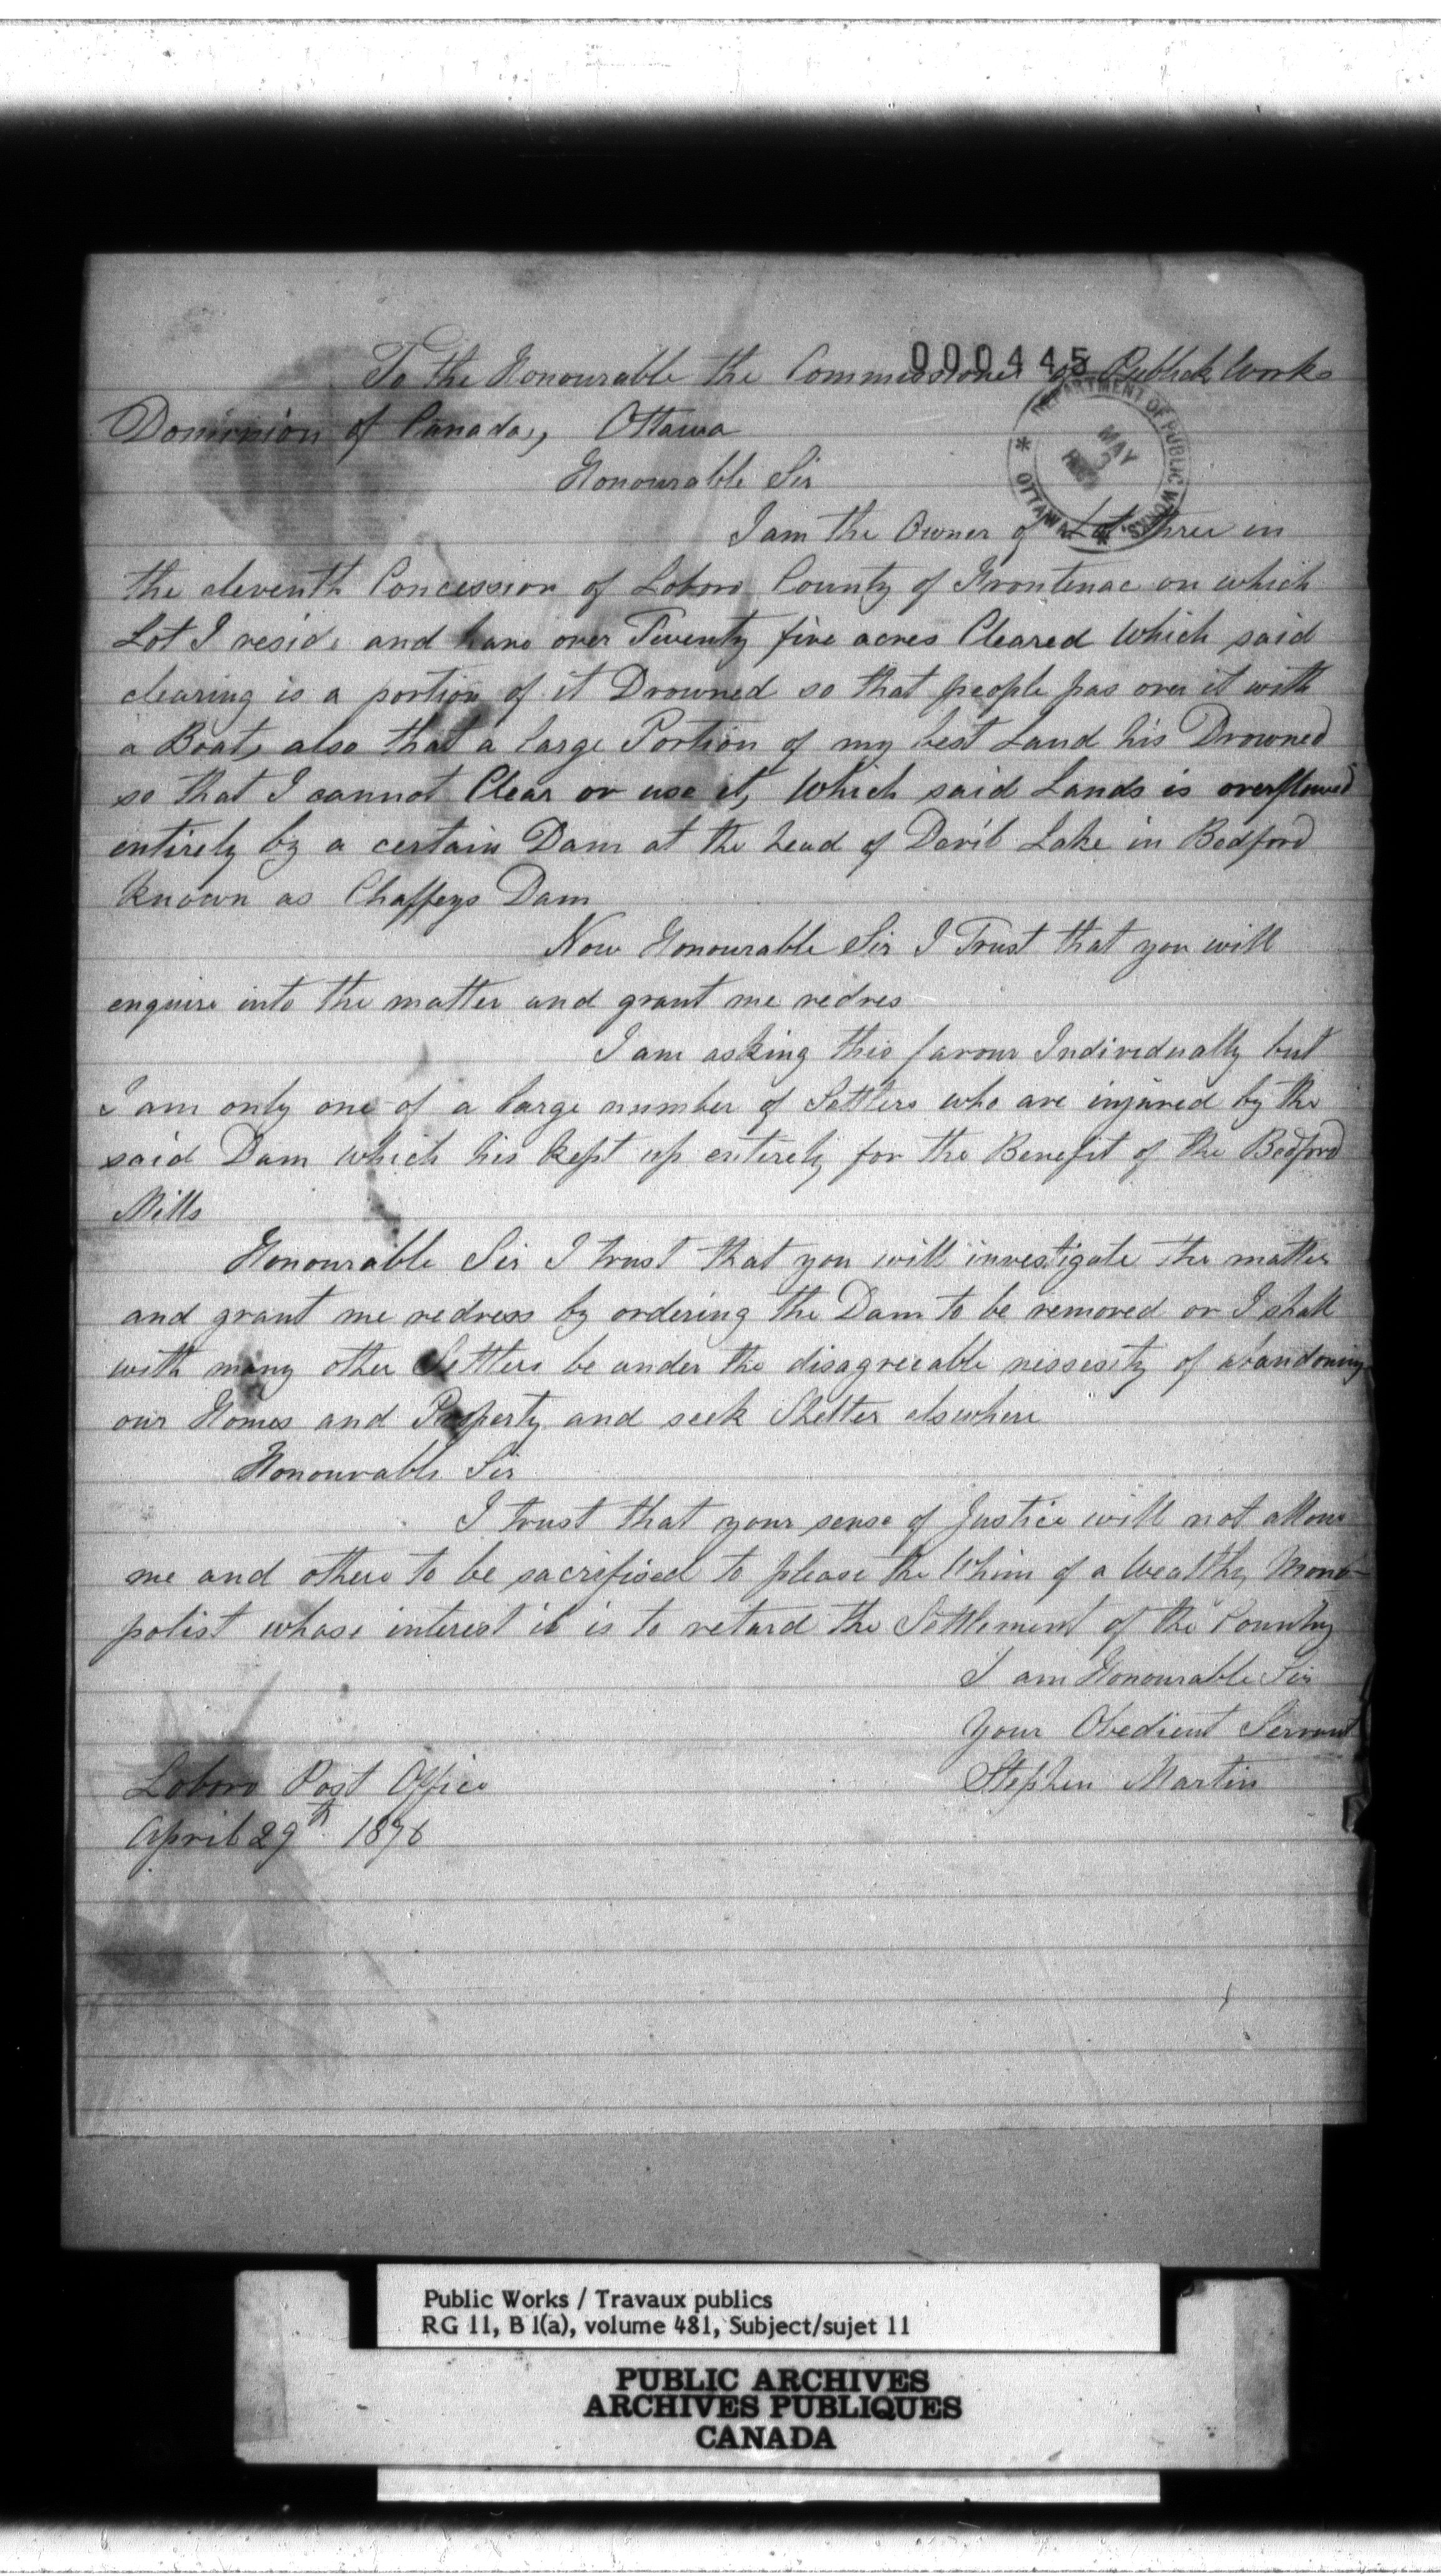 000445
To the Honourable the Commissioner of Publick Works
DEPARTMENT OF PUBLIC WORKS
MAY 3
OTTAWA
Dominion of Canada, Ottawa
Honourable Sir
I am the Owner of Lot three in
the eleventh Concession of Loboro County of Frontenac on which
Lot I reside and have over Twenty five acres Cleared Which said
clearing is a portion of it Drowned so that people pas over it with
a Boat, also that a large Portion of my best Land his Drowned
so that I cannot Clear or use it, Which said Lands is overflowed
entirely by a certain Dam at the head of Devil Lake in Bedford
known as Chaffeys Dam
Now Honourable Sir I Trust that you will
enquire into the matter and grant me redres
I am asking this favour Individually but
I am only one of a large number of Settlers who are injured by the
said Dam which his kept up entirely for the Benefit of the Bedford
Mills
Honourable Sir I trust that you will investigate the matter
and grant me redress by ordering the Dam to be removed or I shall
with many other Settlers be under the disagreeable nessesity of abandoning
our Homes and Property and seek Shelter elswhere
Honourable Sir
I trust that your sense of Justice will not allow
me and others to be sacrifised to please the Whim of a Wealthy Mono-
polist whose interest it is to retard the Settlement of the Country
I am Honourable Sir
Your Obedient Servant
Stephen Martin
Loboro Post Office
April 29th 1876
Public Works / Travaux publics
RG 11, B 1(a), volume 481, Subject/sujet 11
PUBLIC ARCHIVES
ARCHIVES PUBLIQUES
CANADA